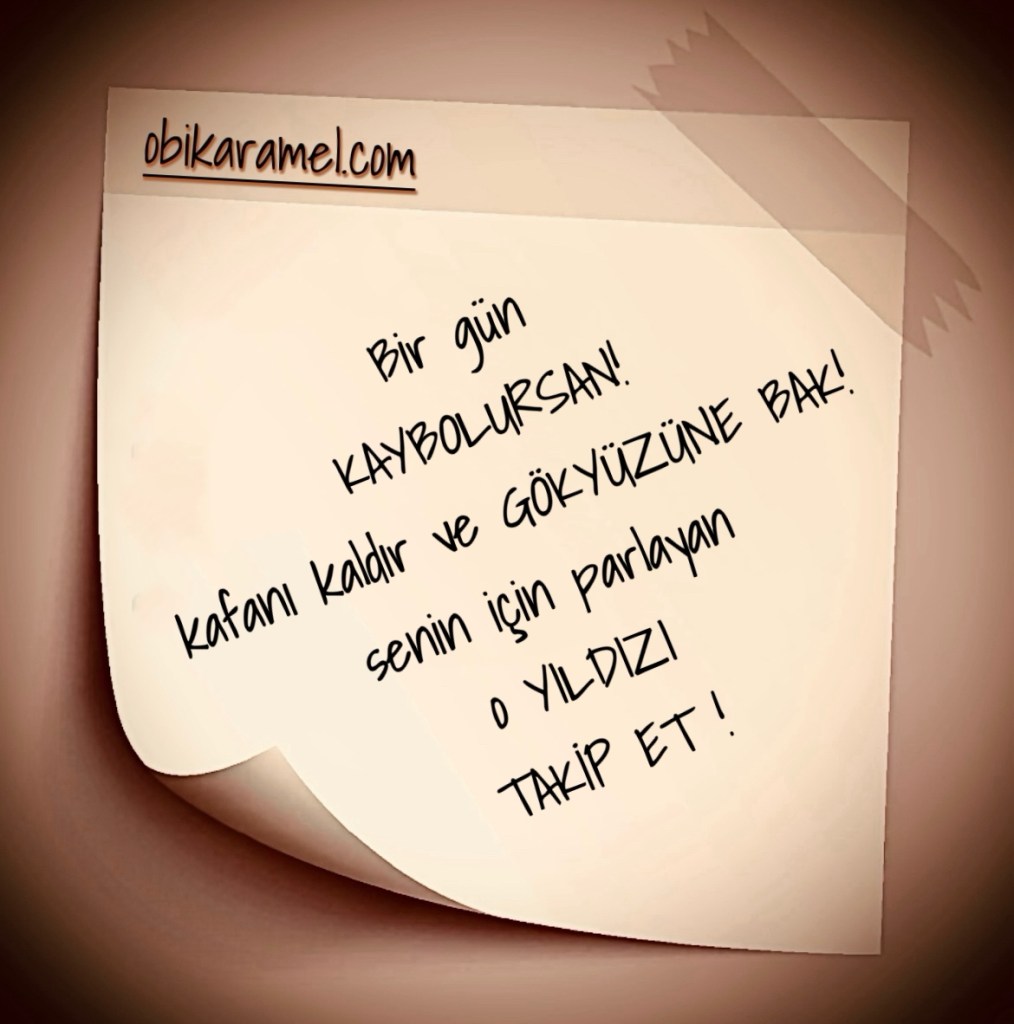 obikaramel.com
Bir gün
KAYBOLURSAN!
kafanı kaldır ve GÖKYÜZÜNE BAK!
senin için parlayan
o YILDIZI
TAKİP ET !